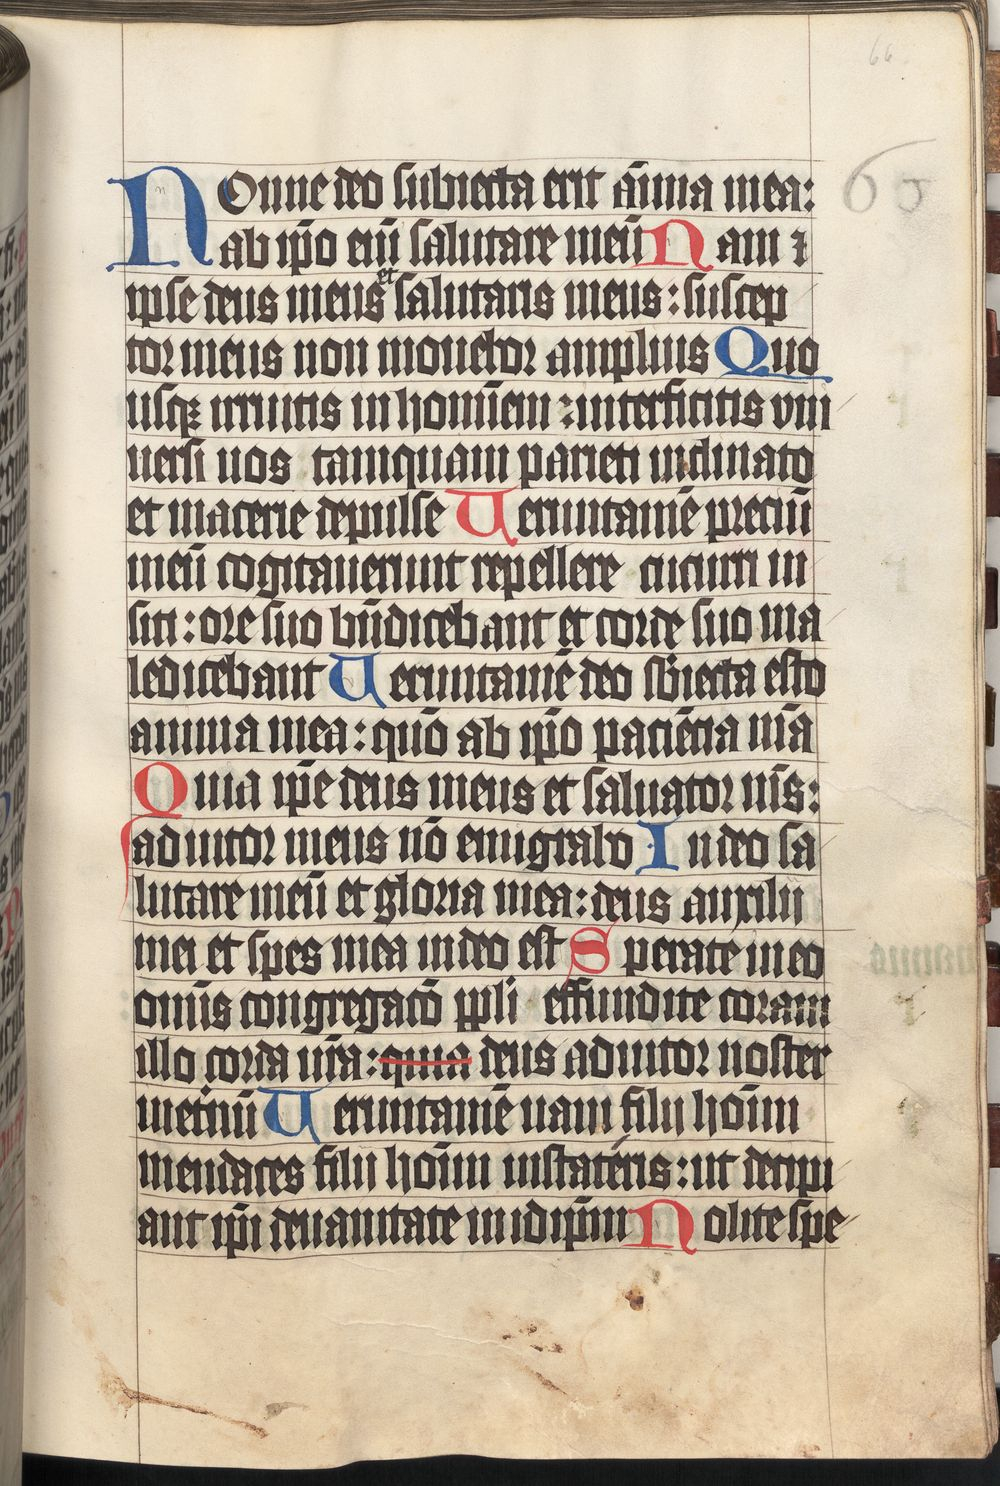 66
65
NOnne deo subiecta erit aīma mea:
ab ip̄o eni̅ salutare meū Nam ⁊
et
ipse deus meus salutaris meus: suscep
tor meus non mouebor amplius Quo
usq̨ irruitis in homīem: interficitis vni
uersi uos tamquam parieti inclinato
et macerie depulse Ueruntamē preciū
meū cogitauerunt repellere cucurri in
siti: ore suo bn̄dicebant et corde suo ma
ledicebant Ueruntamē deo sb̄iecta esto
anima mea: qm̄o ab ip̄o paciētia m̄a
Quia ip̄e deus meus et saluator m̄s:
adiutor meus nō emigrabo In deo sa
lutare meū et gloria mea: deus auxilii
mei et spes mea in deo est Sperate in eo
omīs congregatō pp̄li effundite coram
illo corda ur̄a: quia deus adiutor noster
inetn̄ū Ueruntamē uani filii hoīm
mendaces filii hoīm in statēris: ut decipi
ant ip̄i de uanitate in idip̄m Nolite spe